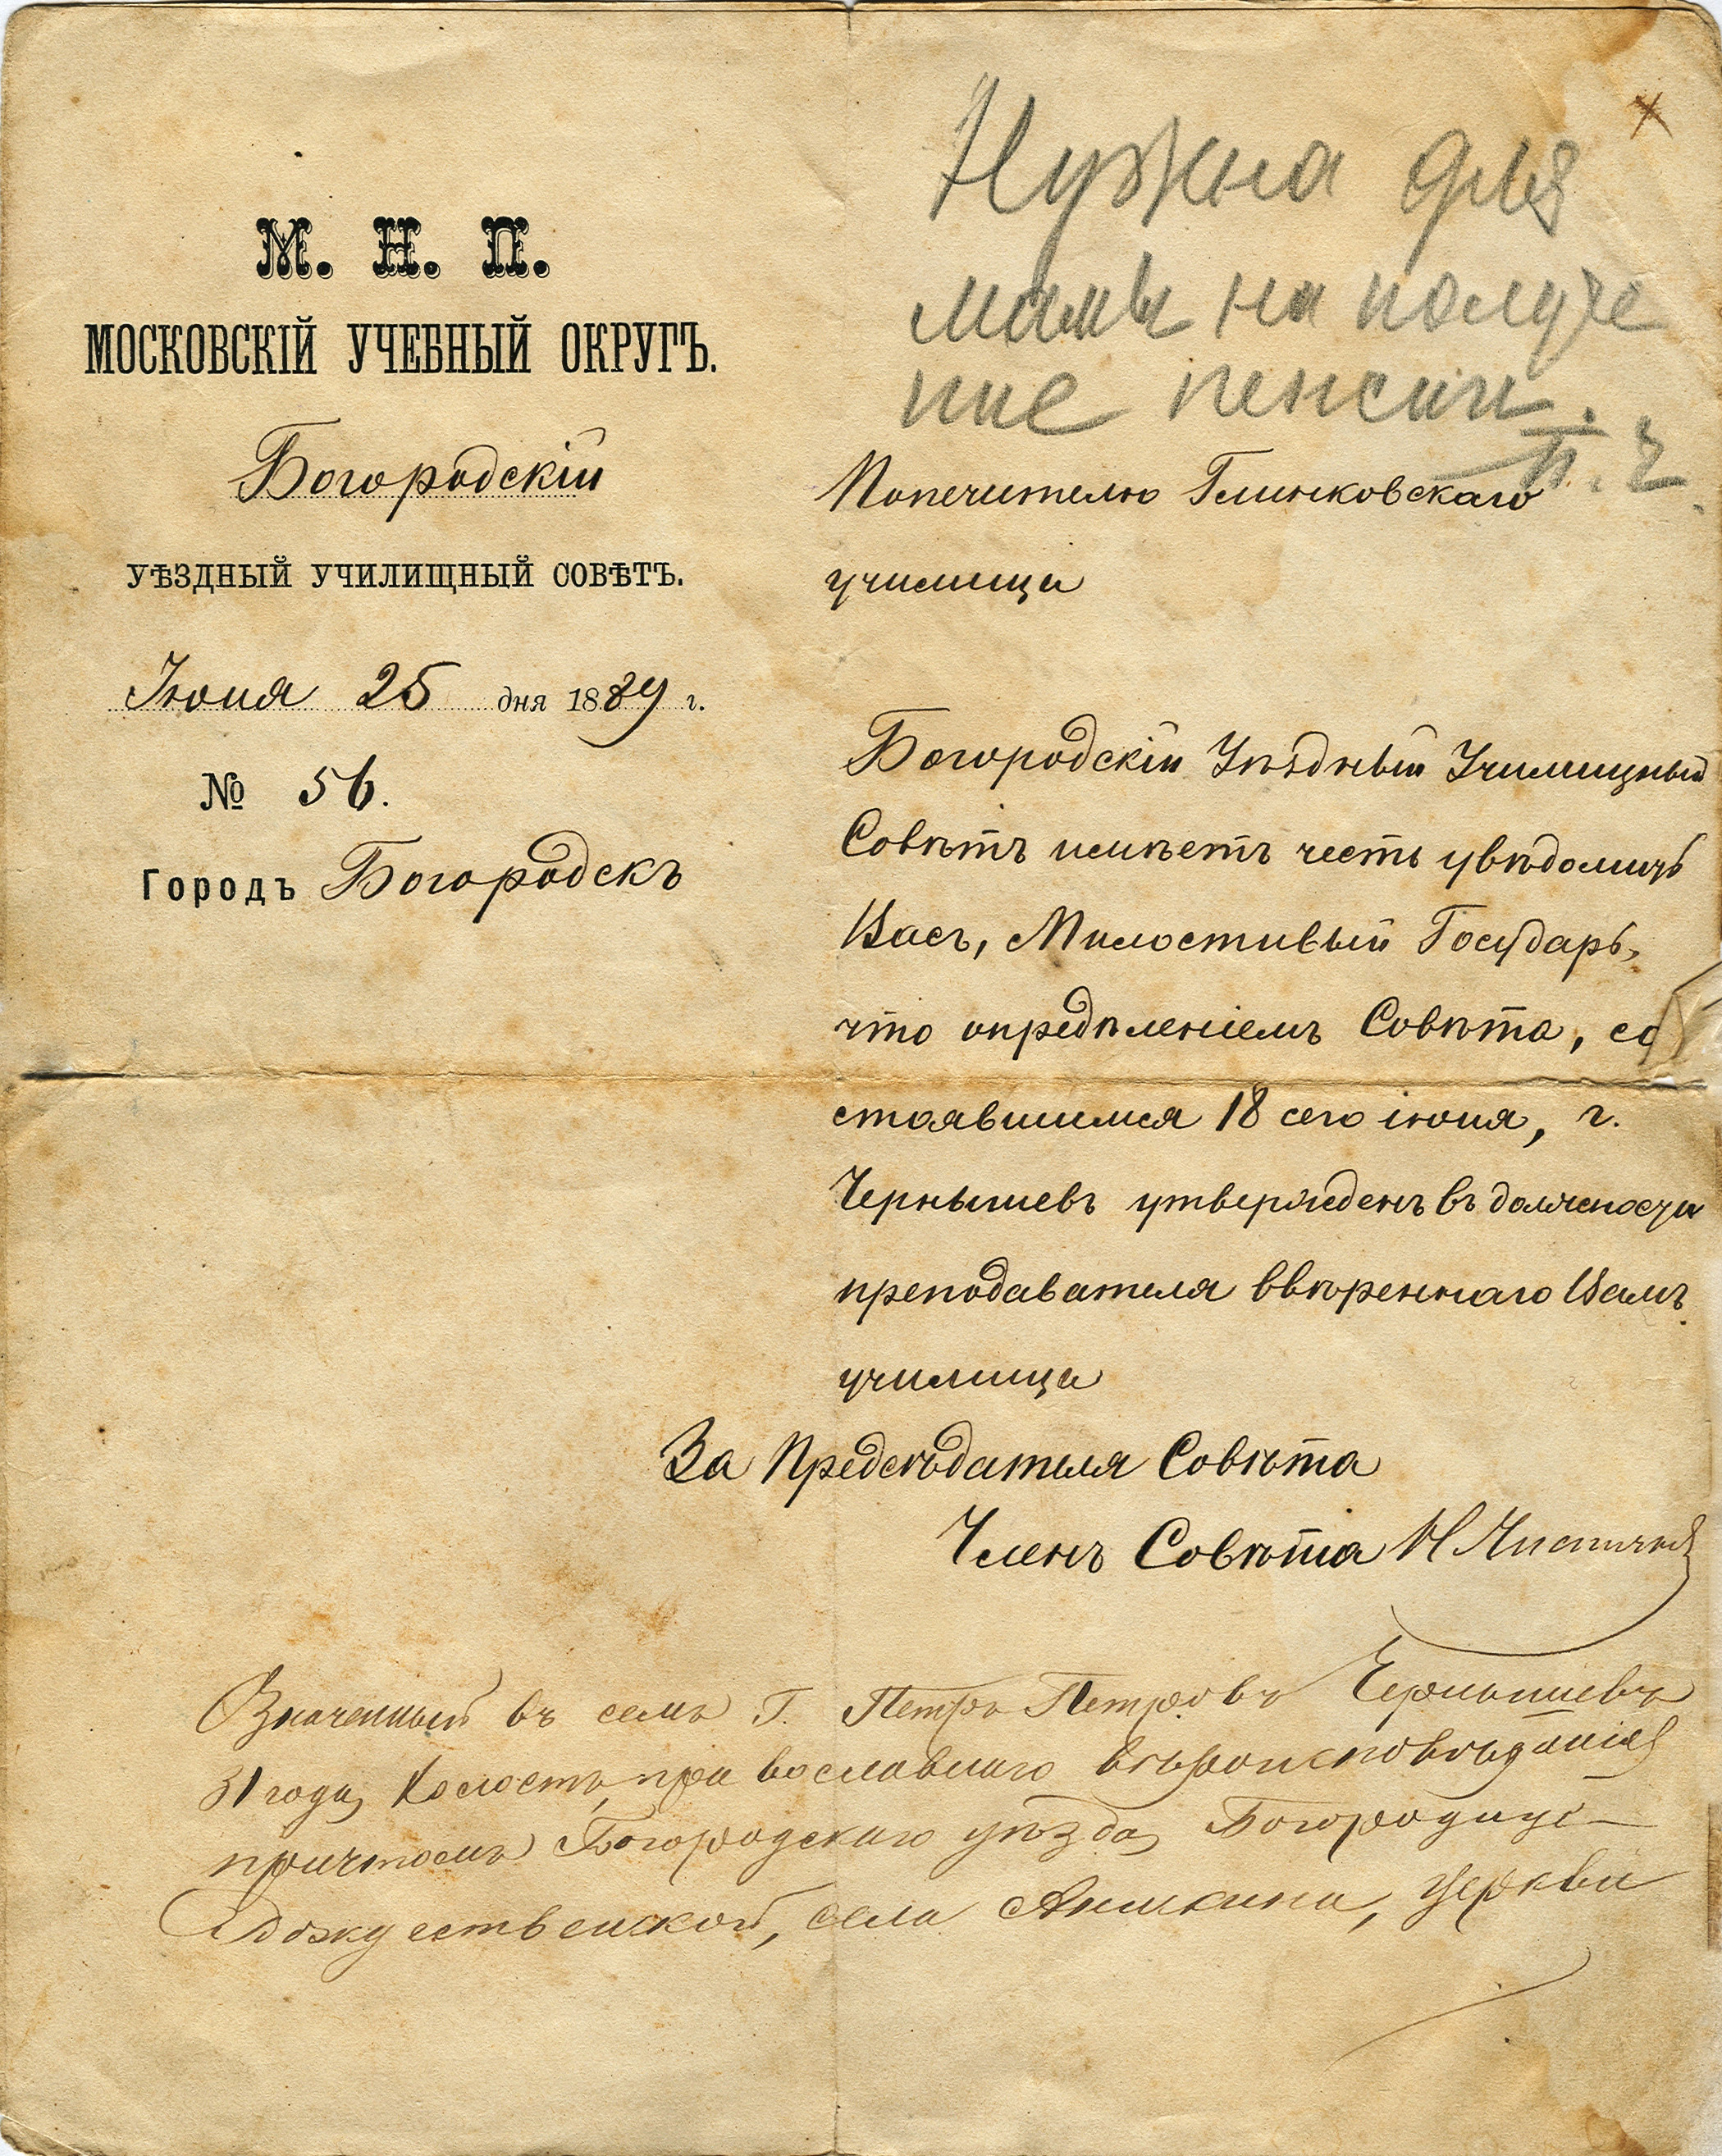 М. Н. П.
МОСКОВСКІЙ УЧЕБНЫЙ ОКРУГЪ.
Богородскій
УѢЗДНЫЙ УЧИЛИЩНЫЙ СОВѢТЪ.
Іюня 25 дня 1889 г.
№ 56.
Городъ Богородскъ
Нужна для
мамы на получе
ние пенсии.
П. Ч.
Попечителю Глинковскаго
училища
Богородскій Уѣздный Училищный
Совѣтъ имѣетъ честь увѣдомить
Васъ, Милостивый Государь,
что опредѣленіемъ Совѣта, со
стоявшимся 18 сего іюня, г.
Чернышевъ утвержденъ въ должности
преподавателя ввѣреннаго Вамъ
училища
За Предсѣдателя Совѣта
Членъ Совѣта Н
Означенный въ семъ Г. Петръ Петровъ Чернышевъ
31 года, холостъ, православнаго вѣроисповѣданія
причтомъ Богородскаго уѣзда, Богородице-
Рождественской, села Анискина, церкви